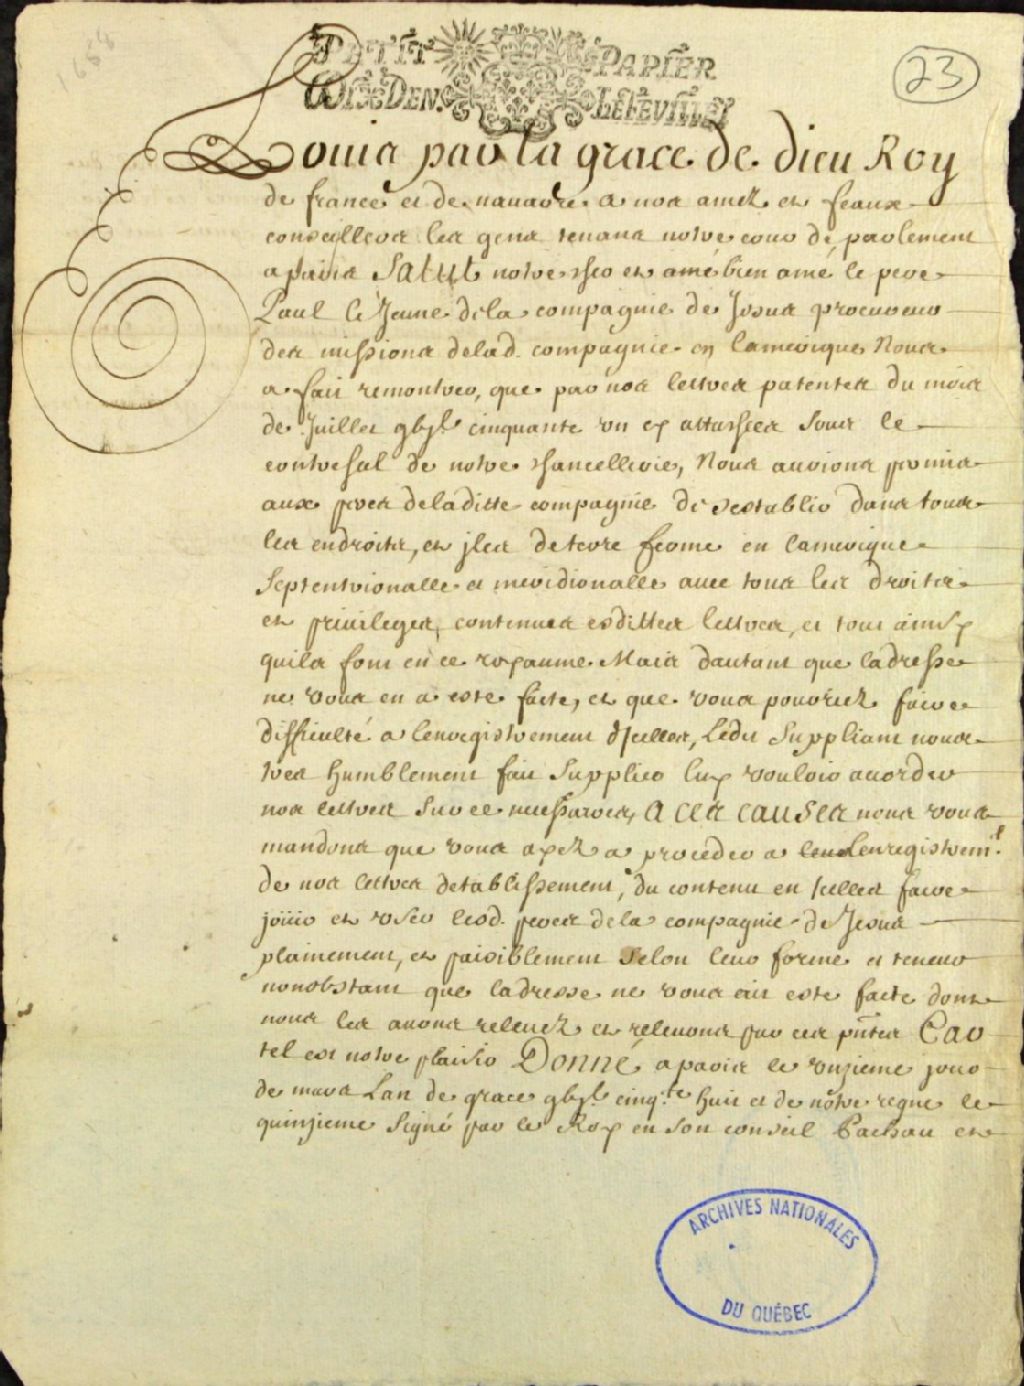 1658
23
PETIT PAPIER
SIX DEN. LE FEUILLET
Louis par la grace de dieu Roy
de france et de nauarre a nos amez et feaux
conseillers les gens tenans notre cour de parlement
a paris Salut notre cher et amé bien amé le pere
Paul le Jeune de la compagnie de Jesus procureur
des missions delad. compagnie en lamerique Nous
a fait remontrer, que par nos lettres patentes du mois
de Juillet gbjc cinquante un cy attachées sous le
contrescal de notre chancellerie, Nous aurions permis
aux peres deladitte compagnie de sestablir dans tous
les endroits, et jles de terre ferme en lamerique
Septentrionalle et meridionalle auec tous les droits
et priuileges, contenues esdittes lettres, et tout ainsy
quils font en ce royaume Mais dautant que ladresse
ne vous en a esté faite, et que vous pouriez faire
difficulté a lenregistrement djcelles, Ledit Suppliant nous a
tres humblement fait supplier luy vouloir accorder
nos lettres sur ce necessaires, A CES CAUSES nous vous
mandons que vous ayez a proceder a lenregistremt.
de nos lettres detablissement, du contenu en jcelles faire
joüir et vser lesd. peres de la compagnie de Jesus
plainement, et paisiblement selon leur forme et teneur
nonobstant que ladresse ne vous ait esté faite dont
nous les auons releuez et releuons par ces pñtes Car
tel est notre plaisir Donné a paris le vnzieme jour
de mars Lan de grace gbjc cinqte huit et de nôtre regne le
quinzieme Signé par le Roy en son conseil Pachau et
ARCHIVES NATIONALES
DU QUÉBEC